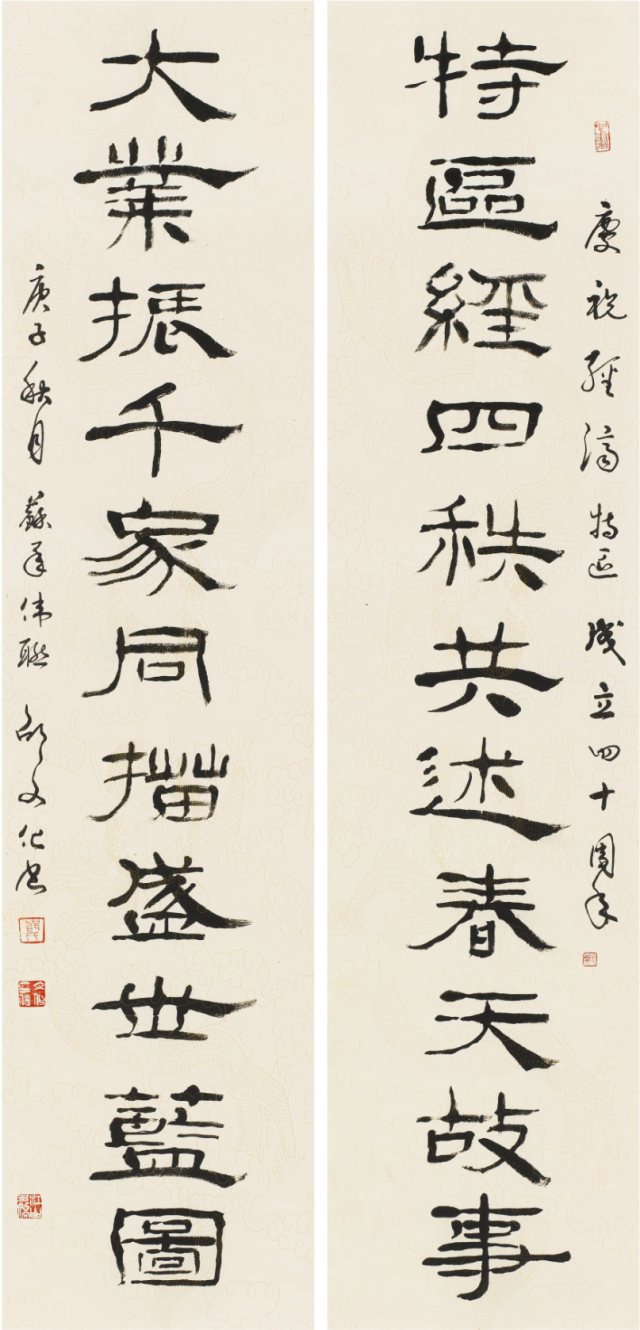 慶祝經濟特区成立四十周年
特區經四秩共述春天故事
大業振千家同描盛世藍圖
庚子秋月蘇年偉聯邵文化書